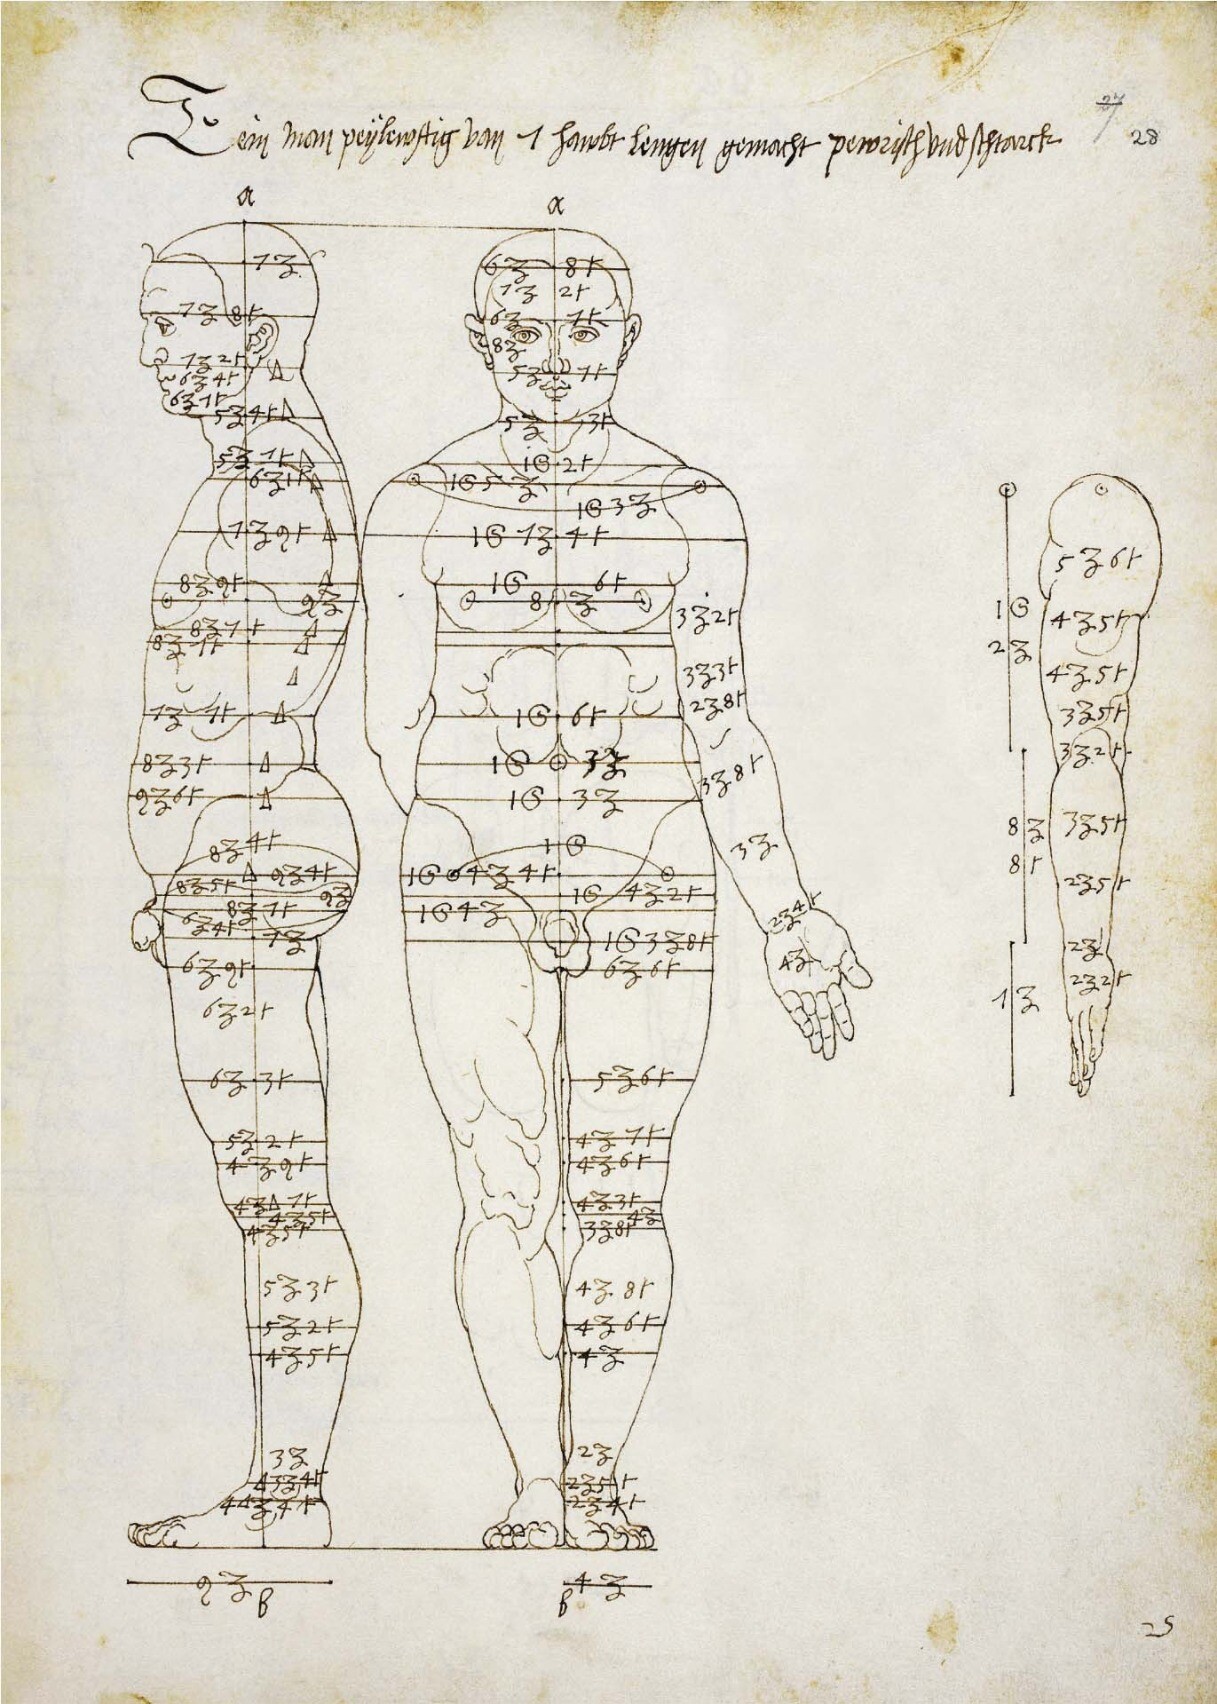 ein man von 1 haubt lengen gemacht pewrisch und schtarck
27
28
a
a
1 ʒ
6 ʒ 8 t
1 ʒ 2 t
7 ʒ 8 t
6 ʒ 7 t
8 ʒ
7 ʒ 2 t
6 ʒ 4 t
5 ʒ 7 t
6 ʒ 7 t
5 ʒ 4 t
5 ʒ 3 t
5 ʒ 7 t
1 G 2 t
6 ʒ 1 t
1 G 5 ʒ
1 G 3 ʒ
7 ʒ 9 t
1 G 1 ʒ 4 t
5 ʒ 6 t
8 ʒ 9 t
1 G 6 t
9 ʒ
8 ʒ
3 ʒ 2 t
1 G
2 ʒ
4 ʒ 5 t
8 ʒ 7 t
8 ʒ 1 t
3 ʒ 3 t
4 ʒ 5 t
2 ʒ 8 t
7 ʒ 7 t
1 G 6 t
3 ʒ 5 t
8 ʒ 3 t
1 G 3 ʒ
3 ʒ 8 t
3 ʒ 2 t
9 ʒ 6 t
1 G 3 ʒ
8 ʒ
8 t
3 ʒ 5 t
8 ʒ 4 t
1 G
3 ʒ
9 ʒ 4 t
1 G 4 ʒ 4 t
8 ʒ 5 t
9 ʒ
1 G 4 ʒ 2 t
2 ʒ 5 t
8 ʒ 7 t
1 G 4 ʒ
2 ʒ 4 t
6 ʒ 4 t
7 ʒ
1 G 3 ʒ 8 t
2 ʒ
6 ʒ 9 t
6 ʒ 6 t
4 ʒ
2 ʒ 2 t
1 ʒ
6 ʒ 2 t
6 ʒ 3 t
5 ʒ 6 t
5 ʒ 2 t
4 ʒ 7 t
4 ʒ 9 t
4 ʒ 6 t
4 ʒ 7 t
4 ʒ 3 t
4 ʒ 5 t
4 ʒ
4 ʒ 5 t
3 ʒ 8 t
5 ʒ 3 t
4 ʒ 8 t
5 ʒ 2 t
4 ʒ 6 t
4 ʒ 5 t
4 ʒ
3 ʒ
2 ʒ
2 ʒ 5 t
2 ʒ 4 t
9 ʒ
4 ʒ
b
b
25